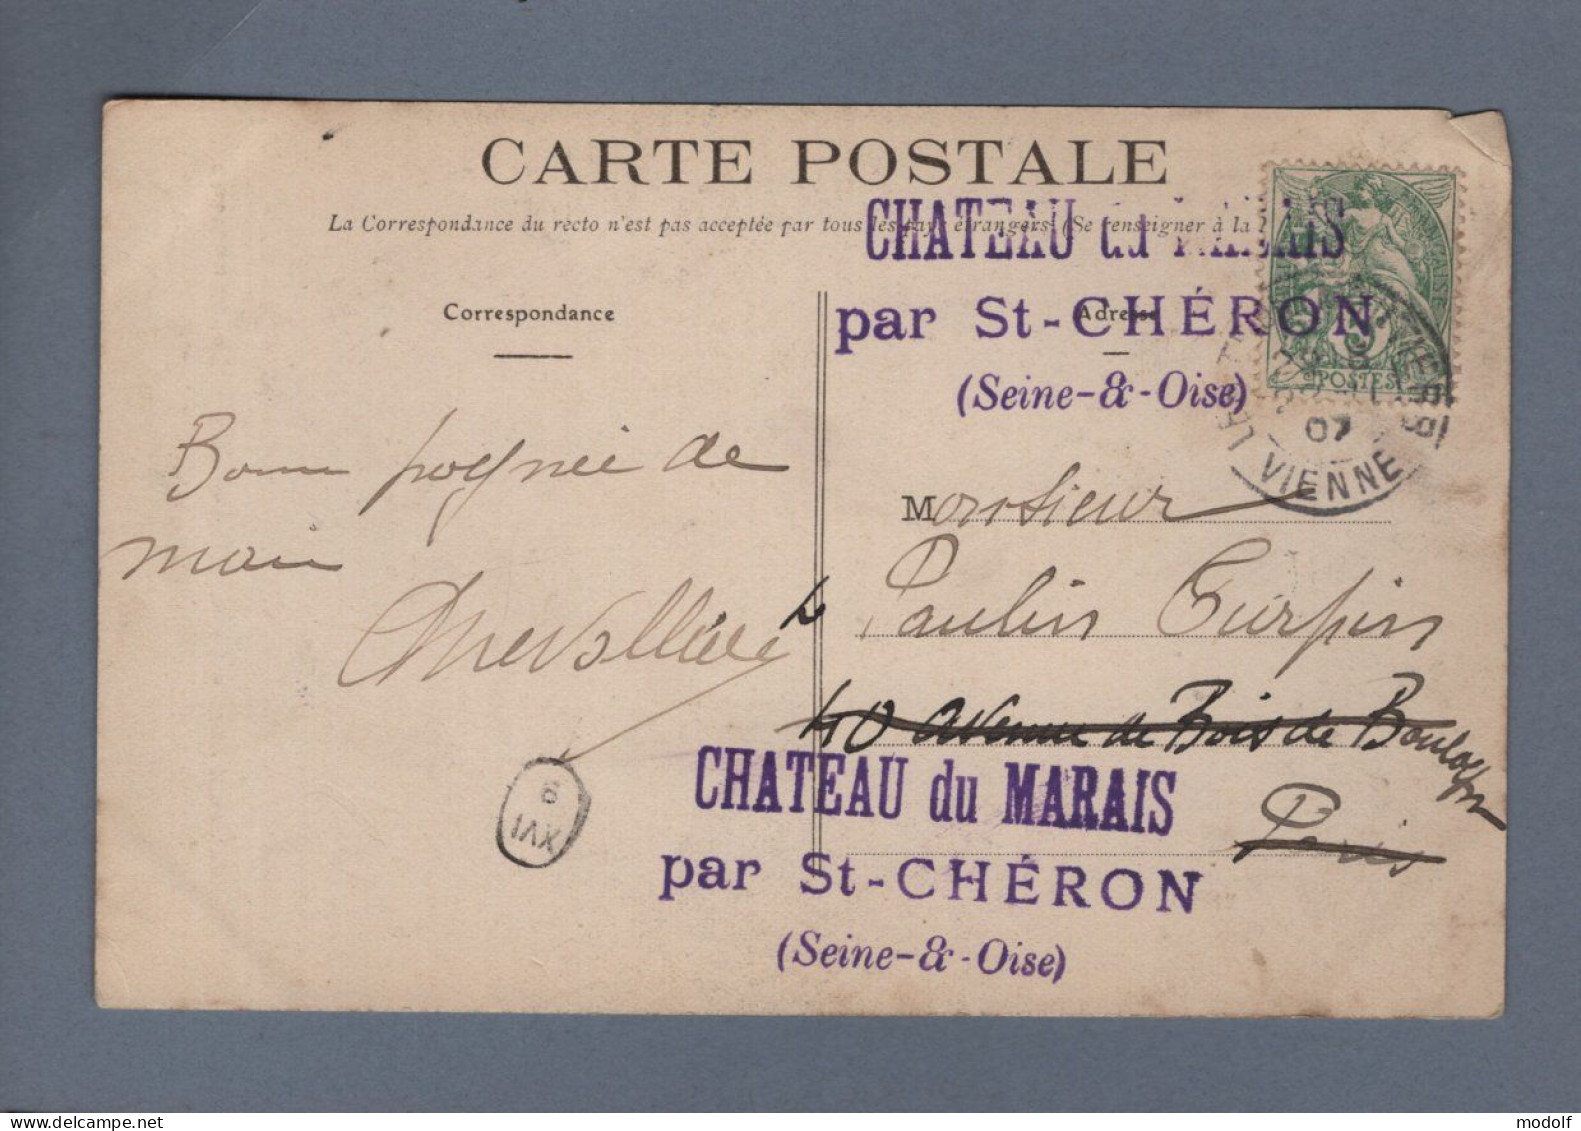 CARTE POSTALE
La Correspondance du recto n'est pas acceptée par tous les pays étrangers (Se renseigner à la
CHATEAU du MARAIS
par St-CHÉRON
(Seine-&-Oise)
Correspondance
Adresse
POSTES
07
VIENNE
Bonne pognée de
main
Monsieur
Paulin Turpin
40 avenue de Bois de Boulogne
Paris
CHATEAU du MARAIS
par St-CHÉRON
(Seine-&-Oise)
XVI
9
www.delcampe.net
modolf